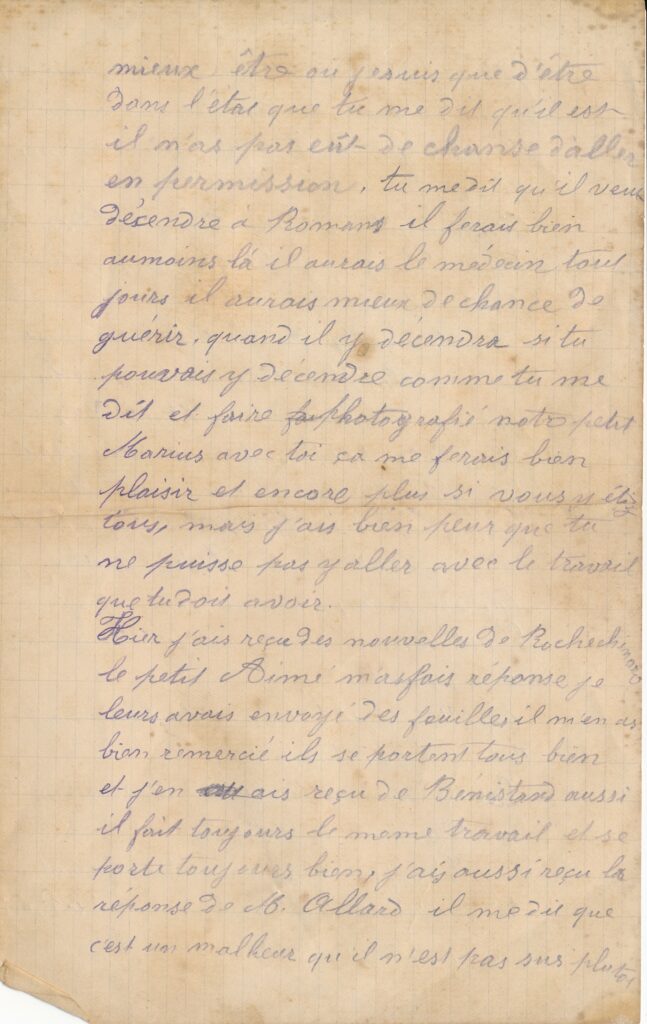 mieux être ou je suis que d'être
dans l'état que tu me dit qu'il est
il n'as pas eût de chanse d'aller
en permission, tu me dit qu'il veut
décendre à Romans il ferais bien
aumoins là il aurais le médecin tout
jours il aurais mieux de chance de
guérir, quand il y décendra si tu
pouvais y décendre comme tu me
dit et faire photografié notre petit
Marius avec toi ça me ferais bien
plaisir et encore plus si vous y étiez
tous, mais j'ais bien peur que tu
ne puisse pas y aller avec le travail
que tu dois avoir.
Hier j'ais reçu des nouvelles de Rochechinard
le petit Aimé m'as fais réponse je
leurs avais envoyé des feuilles il m'en as
bien remercié ils se portent tous bien
et j'en ais reçu de Bénistand aussi
il fait toujours le meme travail et se
porte toujours bien, j'ais aussi reçu la
réponse de M. Allard il me dit que
c'est un malheur qu'il n'est pas sus plutot